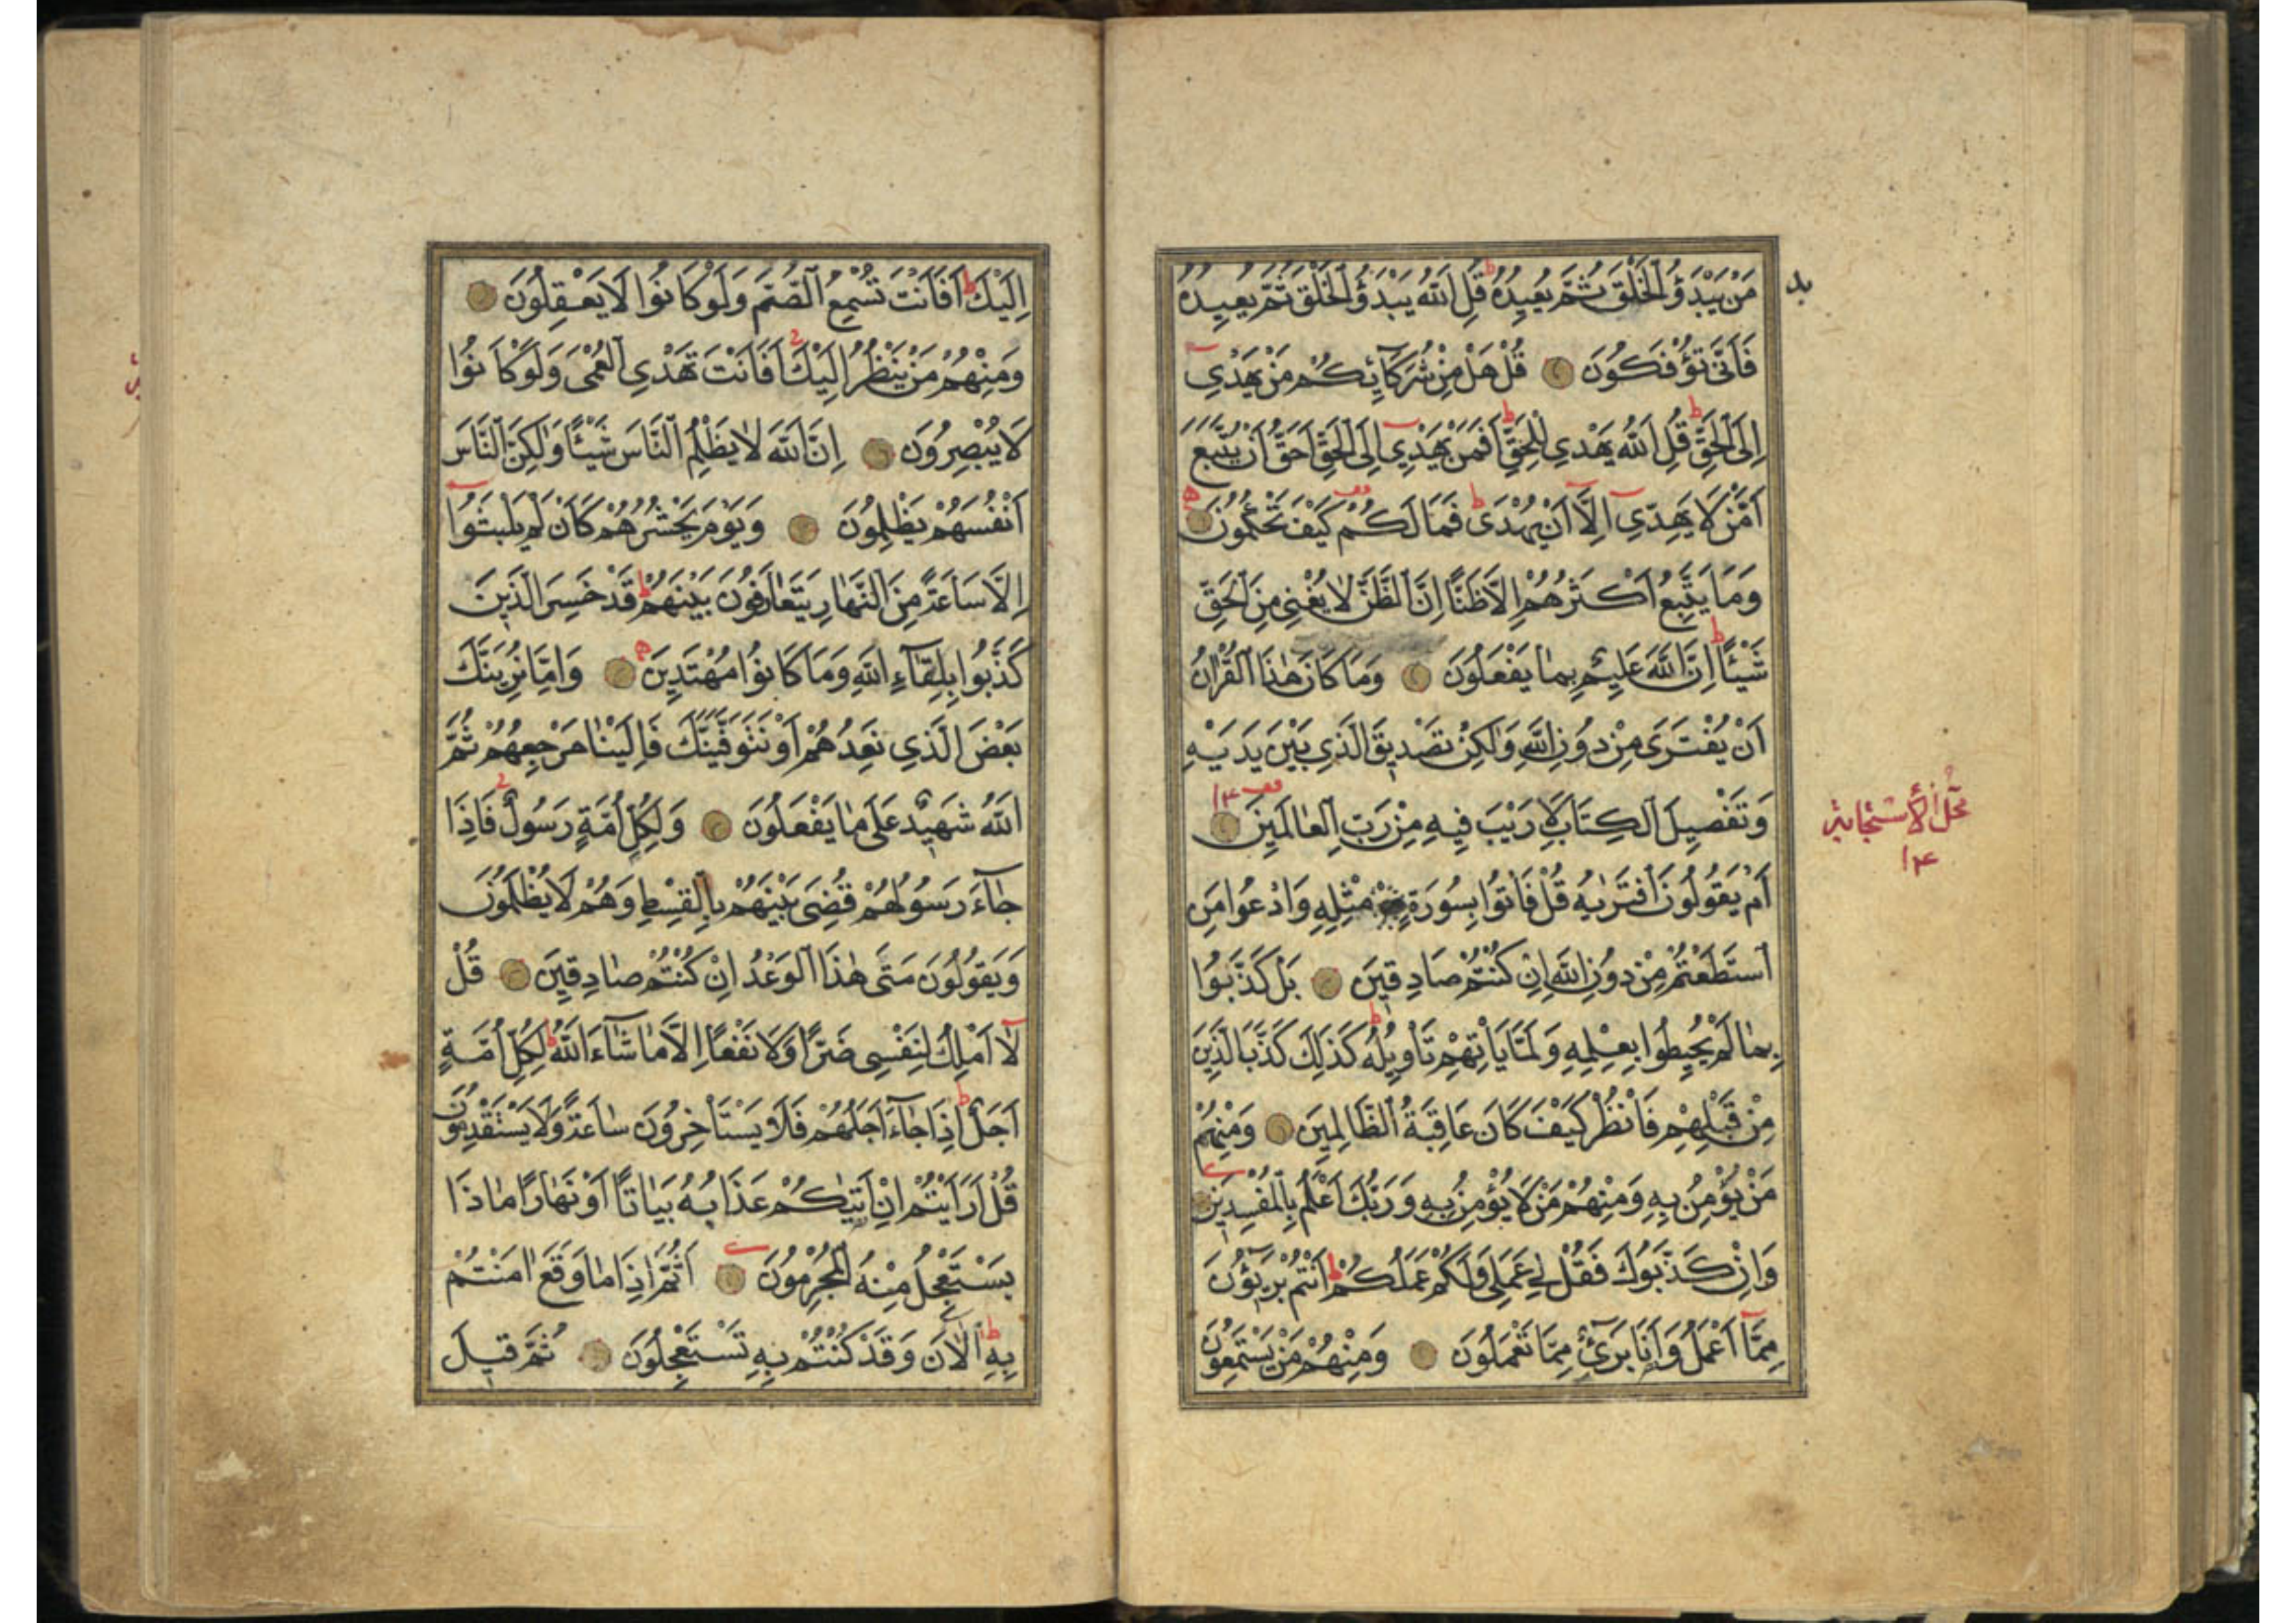 مَنْ يَبْدَؤُ الْخَلْقَ ثُمَّ يُعِيدُهُ ط قُلِ اللّٰهُ يَبْدَؤُ الْخَلْقَ ثُمَّ يُعِيدُهُ
فَاَنّٰى تُؤْفَكُونَ قُلْ هَلْ مِنْ شُرَكَآئِكُمْ مَنْ يَهْدِي
اِلَى الْحَقِّ ط قُلِ اللّٰهُ يَهْدِي لِلْحَقِّ ط اَفَمَنْ يَهْدِي اِلَى الْحَقِّ اَحَقُّ اَنْ يُتَّبَعَ
اَمَّنْ لَا يَهِدِّي اِلَّا اَنْ يُهْدٰى ط فَمَا لَكُمْ كَيْفَ تَحْكُمُونَ
وَمَا يَتَّبِعُ اَكْثَرُهُمْ اِلَّا ظَنًّا اِنَّ الظَّنَّ لَا يُغْنِي مِنَ الْحَقِّ
شَيْئًا ط اِنَّ اللّٰهَ عَلِيمٌ بِمَا يَفْعَلُونَ وَمَا كَانَ هٰذَا الْقُرْاٰنُ
اَنْ يُفْتَرٰى مِنْ دُونِ اللّٰهِ وَلٰكِنْ تَصْدِيقَ الَّذِي بَيْنَ يَدَيْهِ
وَتَفْصِيلَ الْكِتَابِ لَا رَيْبَ فِيهِ مِنْ رَبِّ الْعَالَمِينَ
اَمْ يَقُولُونَ افْتَرٰيهُ قُلْ فَاْتُوا بِسُورَةٍ مِثْلِهِ وَادْعُوا مَنِ
اسْتَطَعْتُمْ مِنْ دُونِ اللّٰهِ اِنْ كُنْتُمْ صَادِقِينَ بَلْ كَذَّبُوا
بِمَا لَمْ يُحِيطُوا بِعِلْمِهِ وَلَمَّا يَاْتِهِمْ تَاْوِيلُهُ ط كَذٰلِكَ كَذَّبَ الَّذِينَ
مِنْ قَبْلِهِمْ فَانْظُرْ كَيْفَ كَانَ عَاقِبَةُ الظَّالِمِينَ وَمِنْهُمْ
مَنْ يُؤْمِنُ بِهِ وَمِنْهُمْ مَنْ لَا يُؤْمِنُ بِهِ وَرَبُّكَ اَعْلَمُ بِالْمُفْسِدِينَ
وَاِنْ كَذَّبُوكَ فَقُلْ لِي عَمَلِي وَلَكُمْ عَمَلُكُمْ ط اَنْتُمْ بَرِيؤُنَ
مِمَّا اَعْمَلُ وَاَنَا بَرِيءٌ مِمَّا تَعْمَلُونَ وَمِنْهُمْ مَنْ يَسْتَمِعُونَ
اِلَيْكَ ط اَفَاَنْتَ تُسْمِعُ الصُّمَّ وَلَوْ كَانُوا لَا يَعْقِلُونَ
وَمِنْهُمْ مَنْ يَنْظُرُ اِلَيْكَ اَفَاَنْتَ تَهْدِي الْعُمْيَ وَلَوْ كَانُوا
لَا يُبْصِرُونَ اِنَّ اللّٰهَ لَا يَظْلِمُ النَّاسَ شَيْئًا وَلٰكِنَّ النَّاسَ
اَنْفُسَهُمْ يَظْلِمُونَ وَيَوْمَ يَحْشُرُهُمْ كَاَنْ لَمْ يَلْبَثُوا
اِلَّا سَاعَةً مِنَ النَّهَارِ يَتَعَارَفُونَ بَيْنَهُمْ ط قَدْ خَسِرَ الَّذِينَ
كَذَّبُوا بِلِقَآءِ اللّٰهِ وَمَا كَانُوا مُهْتَدِينَ وَاِمَّا نُرِيَنَّكَ
بَعْضَ الَّذِي نَعِدُهُمْ اَوْ نَتَوَفَّيَنَّكَ فَاِلَيْنَا مَرْجِعُهُمْ ثُمَّ
اللّٰهُ شَهِيدٌ عَلٰى مَا يَفْعَلُونَ وَلِكُلِّ اُمَّةٍ رَسُولٌ فَاِذَا
جَآءَ رَسُولُهُمْ قُضِيَ بَيْنَهُمْ بِالْقِسْطِ وَهُمْ لَا يُظْلَمُونَ
وَيَقُولُونَ مَتٰى هٰذَا الْوَعْدُ اِنْ كُنْتُمْ صَادِقِينَ قُلْ
لَا اَمْلِكُ لِنَفْسِي ضَرًّا وَلَا نَفْعًا اِلَّا مَا شَآءَ اللّٰهُ ط لِكُلِّ اُمَّةٍ
اَجَلٌ ط اِذَا جَآءَ اَجَلُهُمْ فَلَا يَسْتَاْخِرُونَ سَاعَةً وَلَا يَسْتَقْدِمُونَ
قُلْ اَرَاَيْتُمْ اِنْ اَتٰيكُمْ عَذَابُهُ بَيَاتًا اَوْ نَهَارًا مَاذَا
يَسْتَعْجِلُ مِنْهُ الْمُجْرِمُونَ اَثُمَّ اِذَا مَا وَقَعَ اٰمَنْتُمْ
بِهِ ط اٰلْاٰنَ وَقَدْ كُنْتُمْ بِهِ تَسْتَعْجِلُونَ ثُمَّ قِيلَ